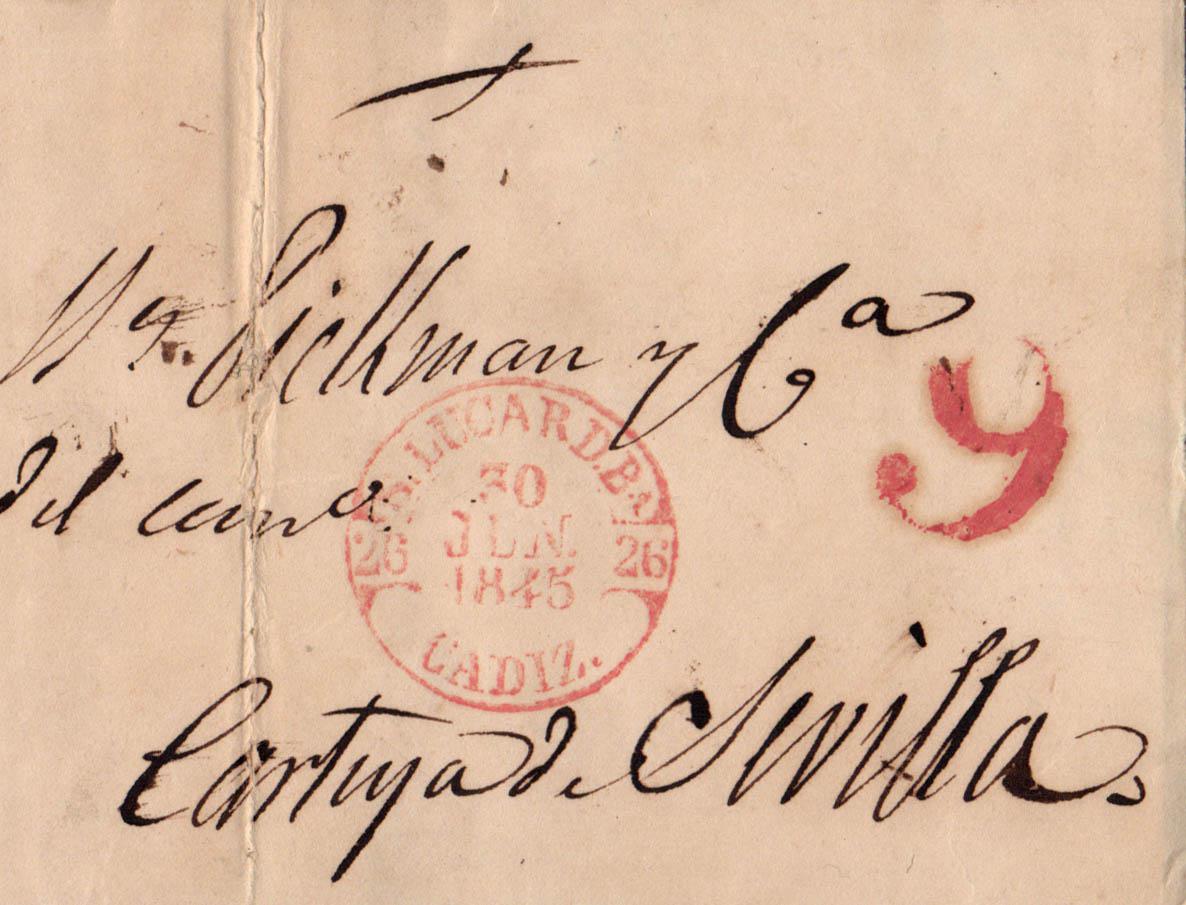 Pickman y Cª
9
del comº
S. LUCAR D. Ba.
30
JUN.
1845
26 26
CADIZ.
Cartuja de Sevilla.